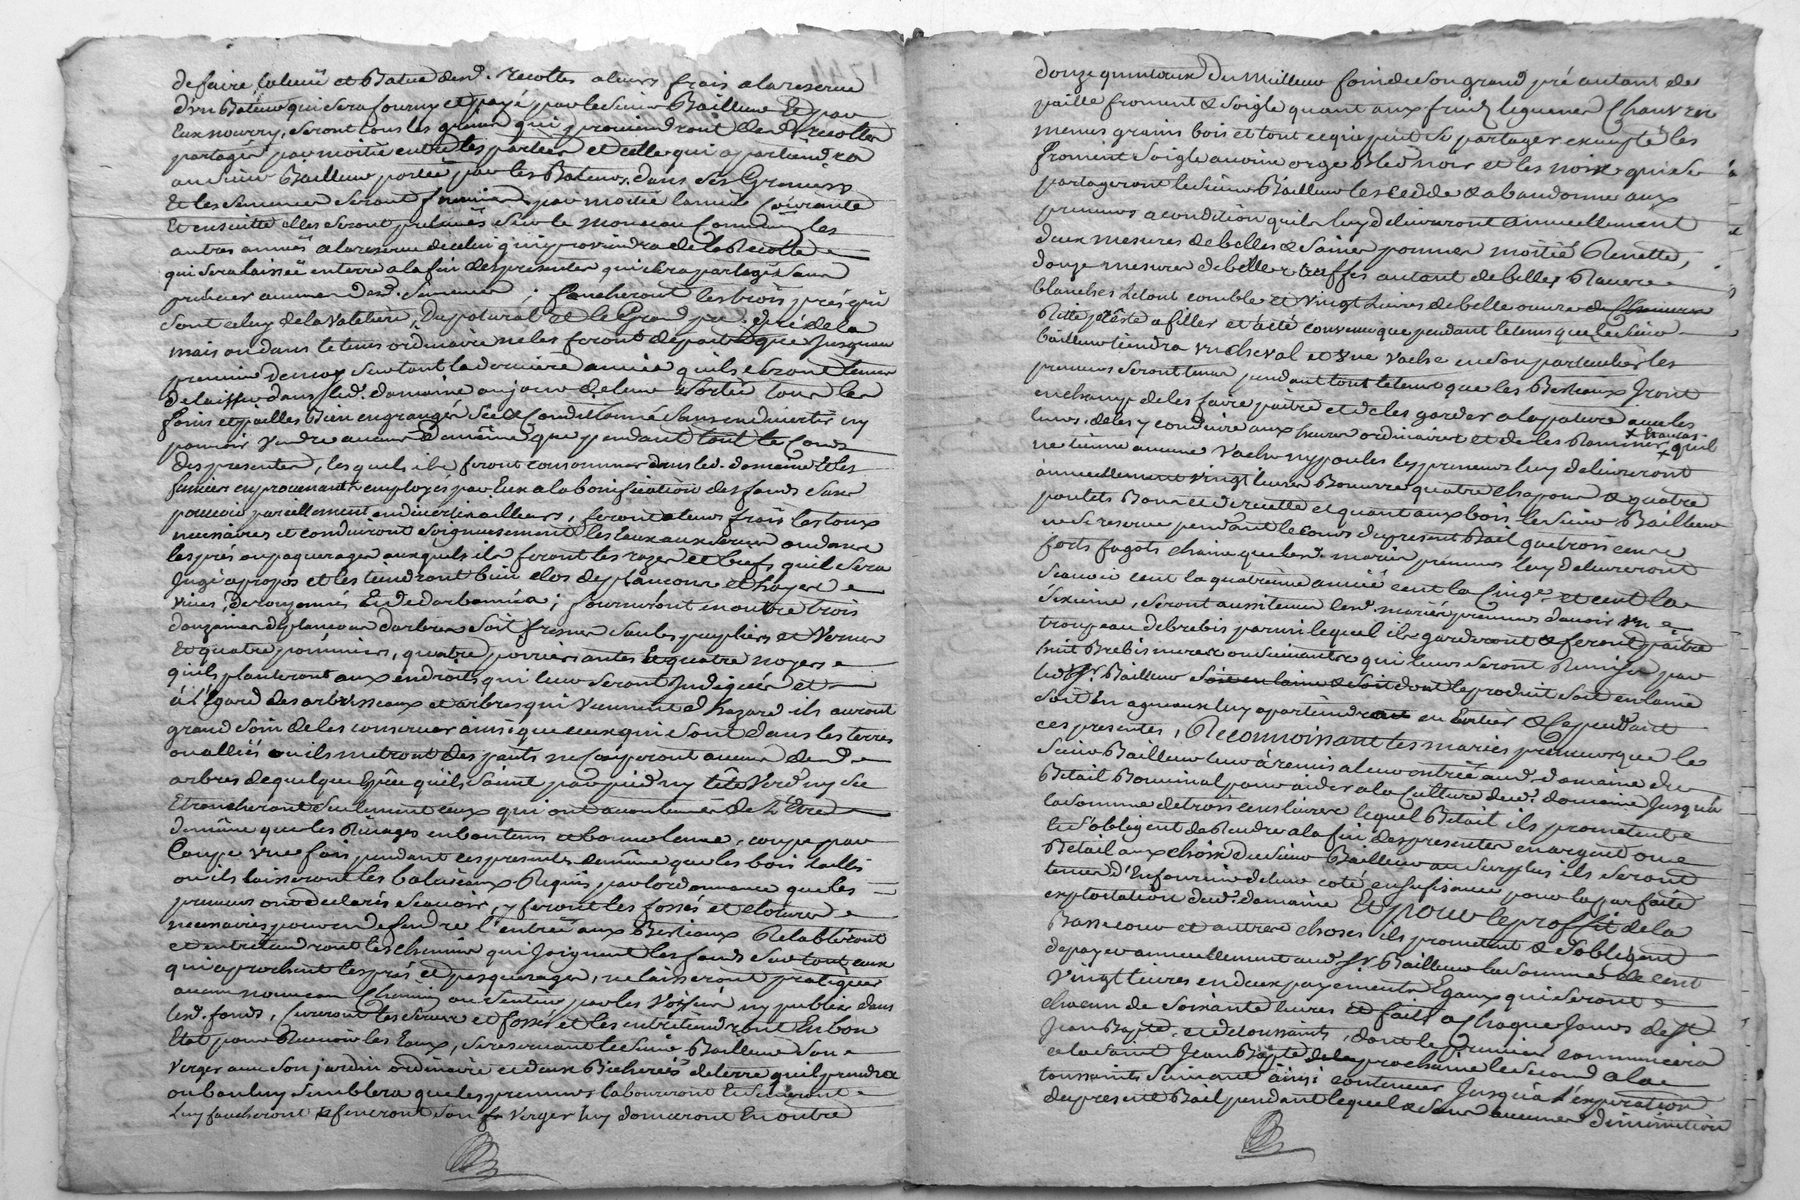 de faire la levée et Batue desd. recoltes a leurs frais a la reserve
d'un Bateur qui sera fourny et payé par le sieur Bailleur Et par
Eux nourry, seront tous les grains qui proviendront desd. recoltes
partagés par moitié entre les parties et celle qui apartiendra
au sieur Bailleur portée par les Bateurs dans ses Greniers
Et les semences seront fournies par moitié l'année Courante
Et ensuitte elles seront prelevées sur le monceau Commun les
autres années a la reserve de celui qui proviendra de la Recolte
qui sera laissée en terre a la fin des presentes qui sera partagé sans
prelever aucunes desd. semences ; faucheront les trois prés qui
sont celuy de la Valchere, Du patural et le Grand pré de la
maison dans le tems ordinaire ne les feront depaitre que jusqu'au
premier de may surtout la derniere année qu'ils seront tenus
de laisser dans led. domaine au jour de leur sortie tous les
foins et pailles Bien engrangés sec et Conditionné sans en divertir ny
pouvoir Vendre aucun de même que pendant tout le Cours
des presentes, lesquels ils feront consommer dans led. domaine Et les
fumiers en provenant employés par Eux a la bonification des fonds sans
pouvoir pareillement en divertir ailleurs, feront a leurs frais les toux
necessaires et conduiront soigneusement les eaux aux serves ou dans
les prés ou paquerages auxquels ils feront les razes et biefs qu'il sera
Jugé apropos et les tiendront bien clos de plançons et hayes
vives, de rouzonnés Et de darbonnéa ; fourniront en outre trois
douzaines de plançons d'arbres soit fresnes saules peupliers et Vernes
Et quatre pommiers, quatre poiriers antés Et quatre noyers
qu'ils planteront aux endroits qui leur seront Indiqués et
à l'égard des arbrisseaux et arbres qui Viennent d'hazard ils auront
grand soin de les conserver ainsi que ceux qui sont dans les terres
ou alliés ou ils mettront des pants ne Couperont aucun desd.
arbres de quelque Espece qu'ils soient par pied ny tête Verd ny sec
Etroncheront seulement ceux qui ont acoutumés de L'Etre
de même que les Rivages en bon tems et bonne lune, coupe par
Coupe Une fois pendant ces presentes de même que les bois taillis
ou ils laisseront les baliveaux Requis par l'ordonnance que les
preneurs ont declarés scavoir, y feront les fossés et clotures
necessaires pour en defendre l'entrée aux Bestiaux Retabliront
et entretiendront les chemins qui Joignent les fonds surtout ceux
qui aprochent les prés et pasquerages, ne laisseront pratiquer
aucun nouveau Chemin ou sentier par les Voisins ny publics dans
lesd. fonds, Cureront les serves et fossés et les entretiendront En bon
Etat pour Recevoir les Eaux, se reservant le sieur Bailleur son
Verger avec son jardin ordinaire et deux Bicherées de terre qu'il prendra
ou bon luy semblera que les preneurs laboureront Ensemeront
Luy faucheront & feneront son Verger luy donneront En outre
douze quintaux Du Meilleur foin de son grand pré autant de
paille froment & soigle quant aux fruits legumes Chanvres
menus grains bois et tout ce qui peut se partager excepté les
froment soigle avoine orge Bled noir et les noix qui se
partageront le sieur Bailleur les cedde & abandonne aux
preneurs a condition qu'ils luy delivreront annuellement
deux mesures de belles & saines pommes moitié Renette,
douze mesures de belles truffes autant de belles Raves
blanches Le tout comble et vingt Livres de belle œuvre de Chanvre
Ritte preste a filler et a été convenu que pendant le tems que le sieur
bailleur tiendra un cheval et une vache en son particulier les
preneurs seront tenus pendant tout le tems que les Bestiaux Iront
en champ de les faire paitre et de les garder a la pature avec les
leurs, de les y conduire aux heures ordinaires et de les Ramener
+ En cas + qu'il
ne tienne aucune Vache ny poules les preneurs luy delivreront
annuellement vingt livres Beurre quatre chapons & quatre
poulets Bons et de recette et quant aux bois, le sieur Bailleur
ne se reserve pendant le Cours du present Bail que trois cents
forts fagots chaine que lesd. mariés preneurs luy delivreront
scavoir cent la quatrieme année cent la Cinqe. et cent la
sixieme, seront aussi tenus lesd. mariés preneurs d'avoir un
troupeau de brebis parmi lequel ils garderont & feront paitre
huit Brebis meres ou suivantes qui leurs seront Remises par
led. Sr. Bailleur soit en laine & soit dont le produit soit en laine
soit En agneaux luy apartiendront en Entier & Cependant
ces presentes, Reconnoissant les mariés preneurs que le
sieur Bailleur leur à remis a leur entrée aud. domaine du
Betail Bouvinal pour aider a la Culture dud. domaine Jusqu'à
la somme de trois cens livres lequel Betail ils promettent
& s'obligent de Rendre a la fin des presentes en argent ou
Betail aux choix du sieur Bailleur au surplus ils seront
tenus d'En fournir de leur coté en sufisance pour la parfaite
exploitation dud. domaine Et pour le proffit de la
Basse cour et autres choses ils promettent & s'obligent
de payer annuellement aud. Sr. Bailleur la somme de cent
vingt livres en deux payements Egaux qui seront
chacun de soixante livres et faits a Chaque Jours de St.
Jean Bapte. et de toussaints, dont le premier commencera
a la saint Jean Bapte. de la prochaine le second a la
toussaints suivant ainsi continuer Jusqu'à l'expiration
du present Bail pendant lequel & sans aucune diminution